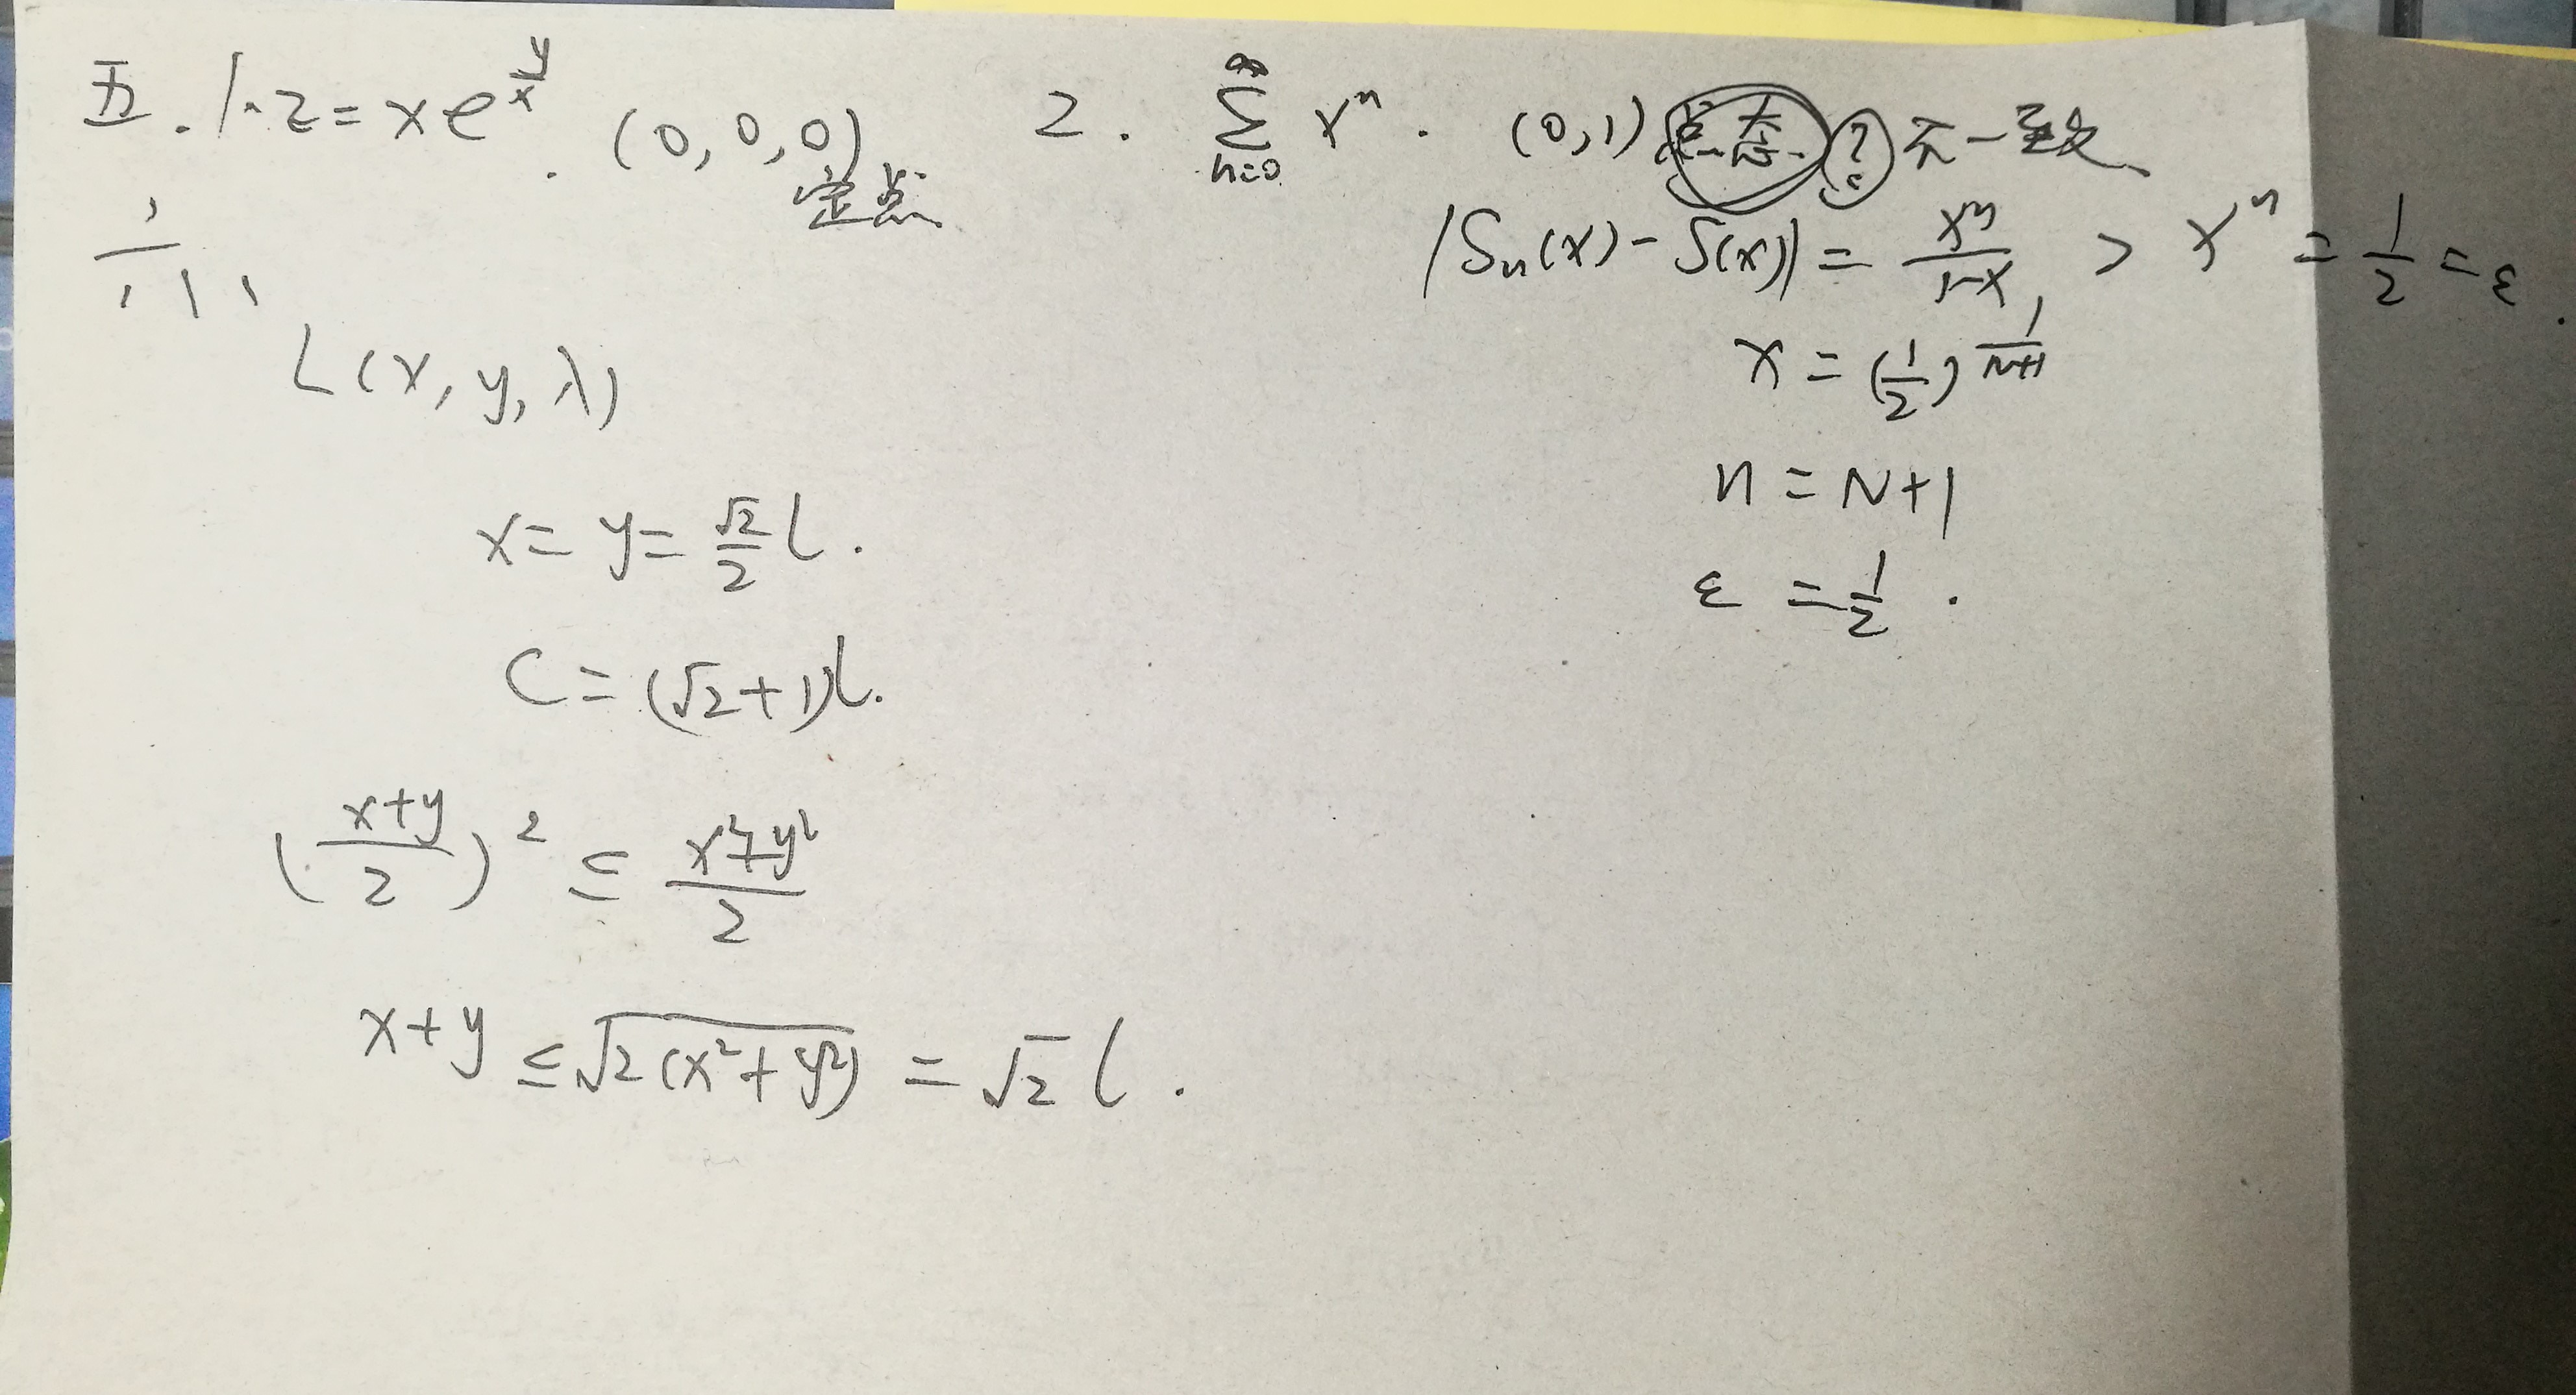 五. 1. z = xe^{y/x}. (0,0,0) 定点
六、
L(x, y, λ)
x = y = √2/2 l.
C = (√2+1)l.
((x+y)/2)^2 ≤ (x^2+y^2)/2
x+y ≤ √(2(x^2+y^2)) = √2 l.
2. ∑_{n=0}^{∞} x^n. (0,1) ? 不一致
|S_n(x) - S(x)| = x^n/(1-x) > x^n = 1/2 = ε.
x = (1/2)^{1/(N+1)}
n = N+1
ε = 1/2.